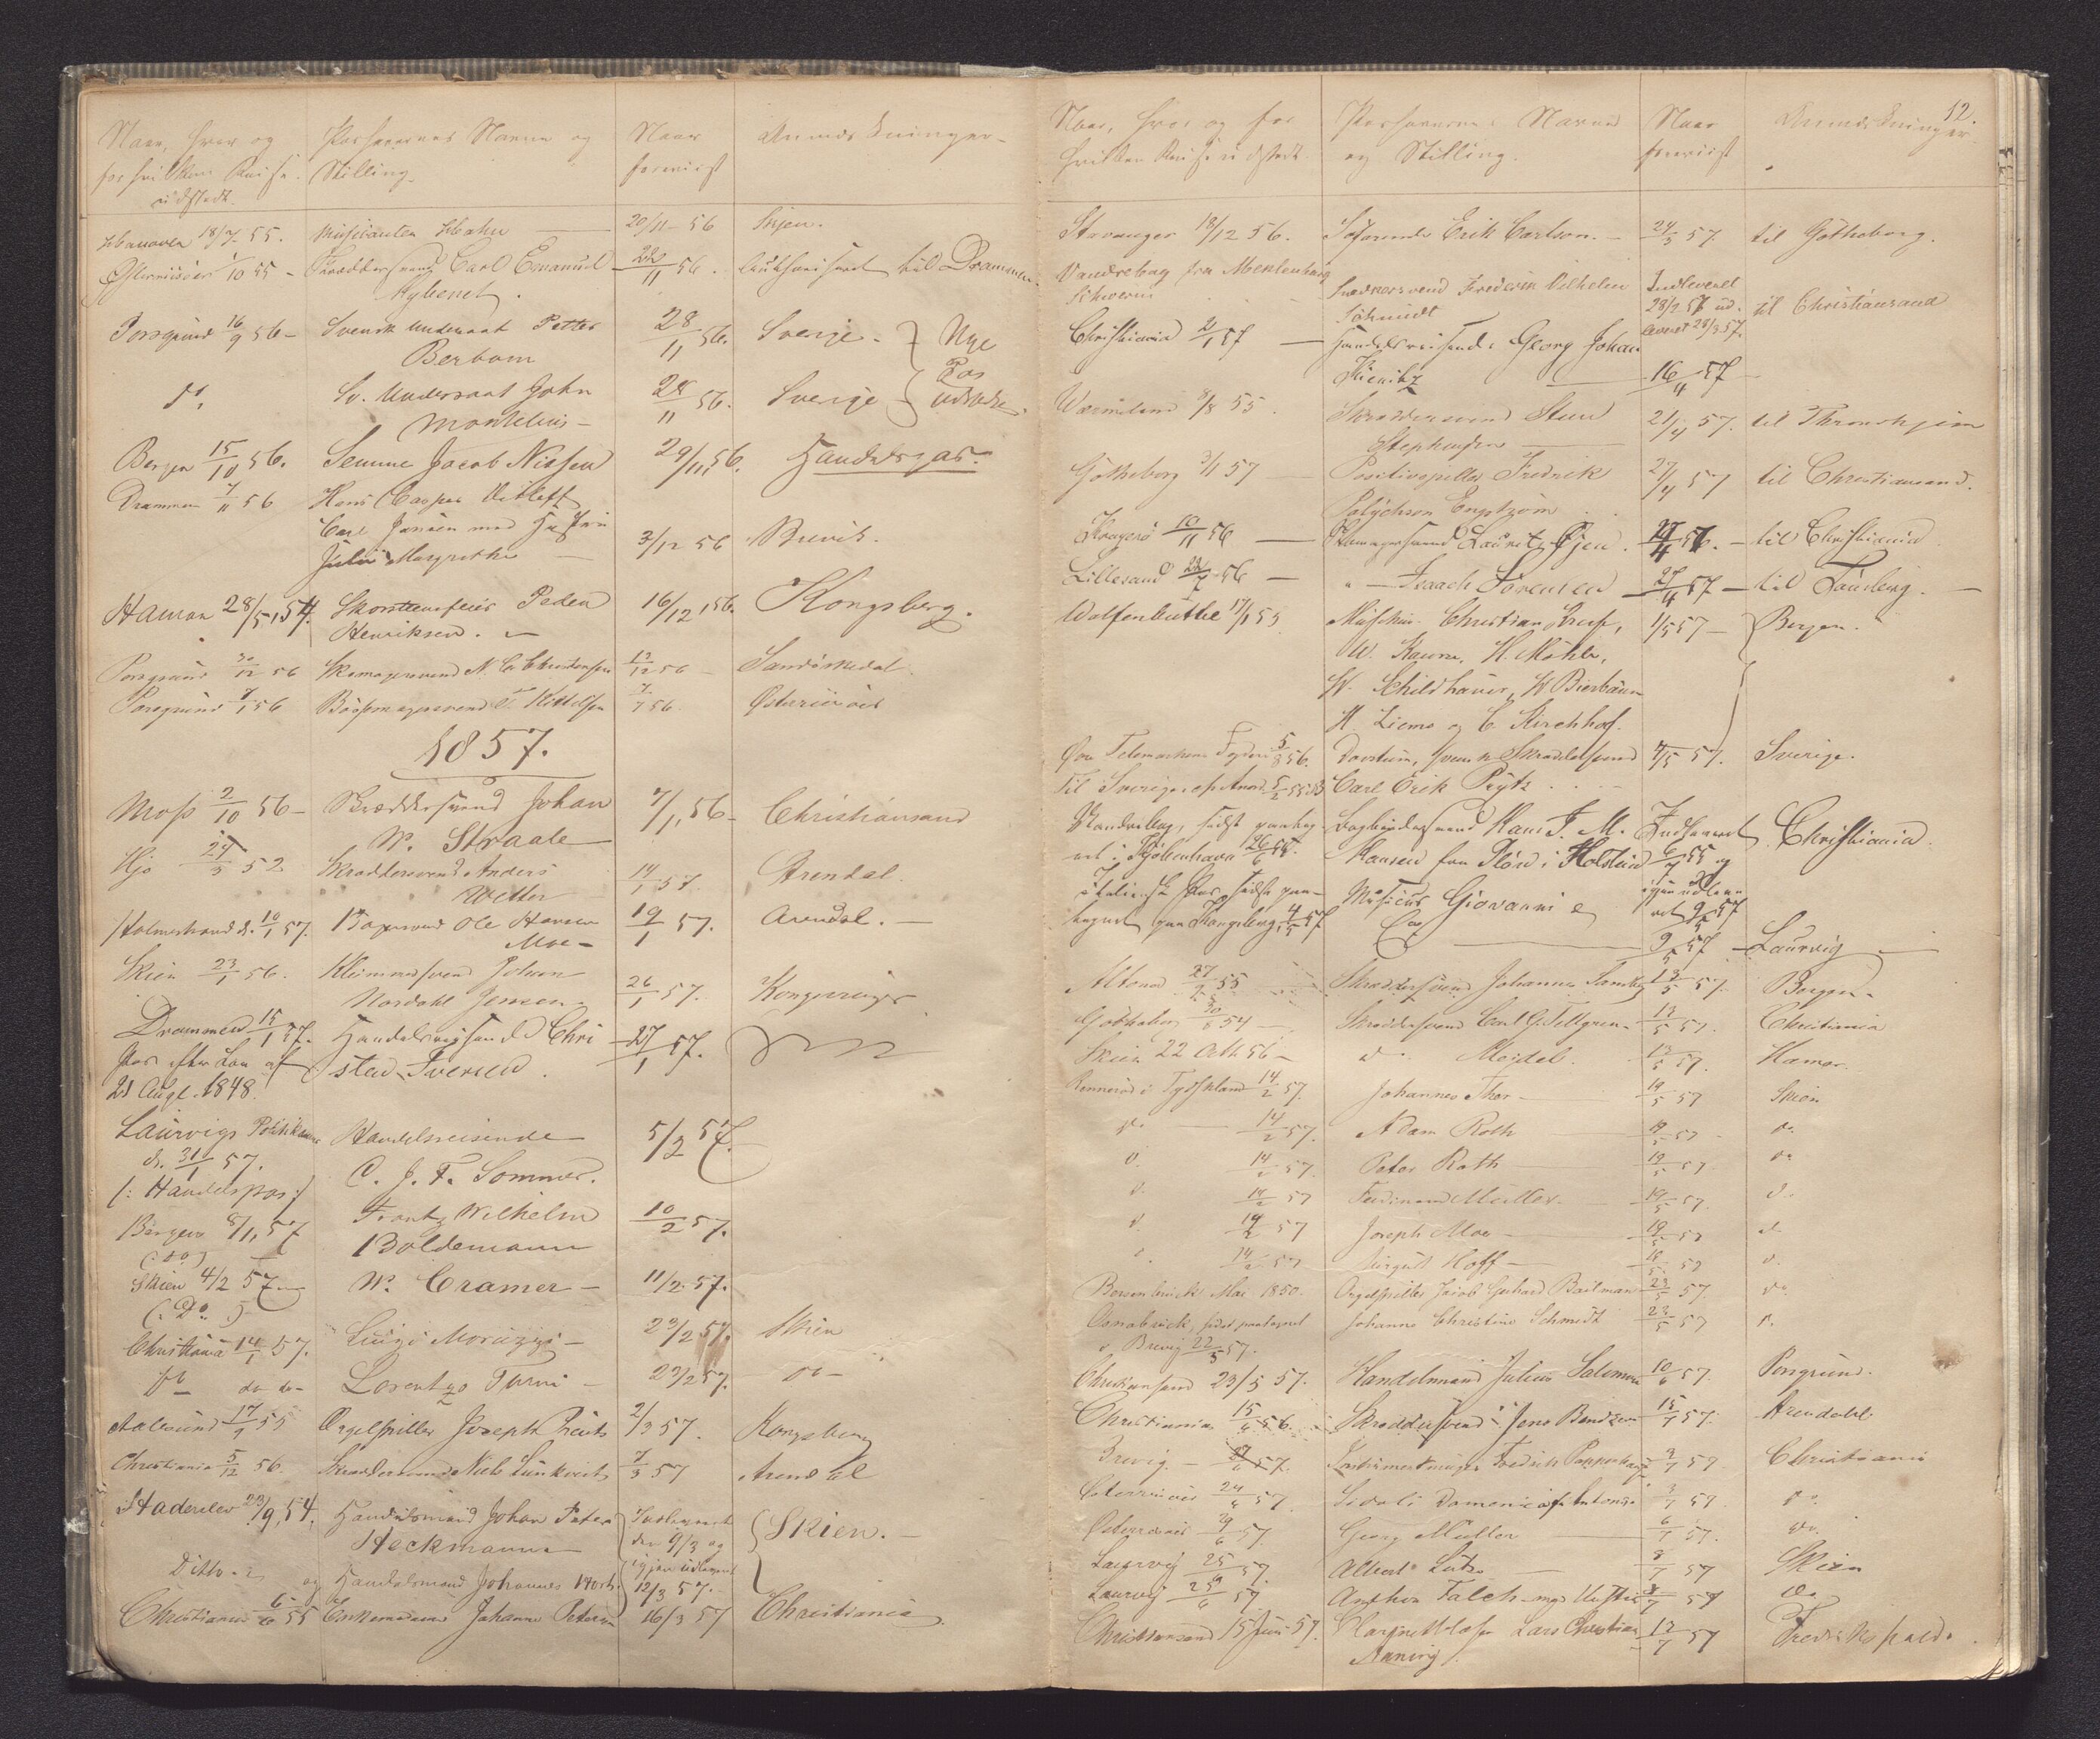 Naar, hvor og
for hvilken Reise
udstedt.
Passernes Navne og
Stilling.
Naar
foreviist
Anmærkninger
Hanover 18/7 55. Musicanten Hahn 20/11 56 Skjen.
Østerriisøer 1/10 55 - Skræddersvend Carl Emanuel 22/11 56. til Drammen.
Porsgrund 16/9 56 - Svensk Undersaat Petter 28/11 56. Sverige. Nye
Berbom Pas
do. Sv. Undersaat John 28/11 56. Sverige udstedt.
Montelius -
Bergen 15/10 56. Jacob Nissen 29/11 56. Handelspas.
Drammen 7/11 56 Hans Casper Ditleff
Carl Jansen med
Julie Margrethe 3/12 56 Brevik.
Hamar 28/5 54. Skorsteensfeier Peder 16/12 56. Kongsberg.
Henriksen.
Porsgrund 30/12 56 Skomagersvend N. C. Christensen 13/12 56 Sandøskedal
Porsgrund 7/1 56 Bøssemagersvend T. Kittelsen 7/7 56. Østeriisöer
1857.
Moss 2/10 56 - Skræddersvend Johan 7/1, 56 - Christiansand
W. Straale
Hjo 29/5 52 Skræddersvend Anders 14/1 57. Arendal.
Wetter
Holmestrand d. 10/1 57. Bagersvend Ole Hansen 19/1 57. Arendal. -
Moe -
Skien 23/1 56. Johan 26/1 57. Kongsvinger
Nordahl Jensen.
Drammen 15/1 57. Handelsreisende Chri 27/1 57.
Pas efter Lov af sten Iversen.
21 Augt. 1848.
Laurvigs Politikammer Handelsreisende 5/2 57.
d. 31/1 57. C. J. F. Sommer.
(: Handelspas :)
Bergen 8/1, 57 Frantz Wilhelm 10/2 57.
(: do :) Boldemann
Skien 4/2 57. W. Cramer - 11/2 57.
(: Do. :)
Christiania 14/1 57. Luigi Moruzzi - 23/2 57. Skien
do do do - Lorentzo Turni - 23/2 57. do -
Aalesund 17/9 55 Orgelspiller Joseph 2/3 57. Kongsberg
Christiania 5/12 56. Skræddersvend Niels Lünkvist 7/3 57 Arendal
Haderslev 23/9, 54. Handelsmand Johan Peter Indleveret Skien. -
Heckmann den 9/3 og
Ditto. og Handelsmand Johannes igjen udleveret
12/3 57. -
Christiania 6/6 55 Enkemadame Johanne Petersen 16/3 57 Christiania
12.
Naar, hvor og for
hvilken Reise udstedt.
Passernes Navne
og Stilling.
Naar
foreviist
Anmærkninger
Stavanger 18/12 56. Søfarende Erik Carlson. - 24/3 57. til Gøtheborg.
Vandrebog fra Meklenburg
Schwerin Snedkersvend Frederik Vilhelm Indleveret
Schmidt 28/2 57 ud- til Christiansand
leveret 28/3 57.
Christiania 2/1 57 - Handelsreisende Georg Johan
Kienitz 16/4 57
Wermeland 8/8 55. Skræddersvend Sten 21/4 57. til Thronhjem
Stephensen
Gøtheborg 3/1 57 Positivspiller Fredrik 27/4 57 til Christiansand.
Engstrøm
Kragerø 10/11 56 - Skomagersvend Lauritz Gjen. 27/4 57. - til Christiania
Lillesand 22/7 56 - " - Isaach Sørensen 27/4 57 - til Tønsberg.
Wolfenbuttel 17/1 55 Musikus. Christian Streif, 1/5 57 - Bergen.
W. Kaune, H. Möhle,
W. Schildhauer, W Bierbaum
H. Ziems og C. Kirchhof.
Øvre Telemarkens Fogderi 5/8 56. svensk Skræddersvend 4/5 57. Sverige.
til Sverige, Carl Erik Prytz
Vandrebog, sidst paateg- Bogbindersvend Hans F. M. Indleveret Christiania.
net i Kjøbenhavn 26/6 55. Hansen fra Pløen i Holsteen 6/7 55 og
italiensk Pas, sidst paa- Musicus Giovanni igjen udleve
tegnet paa Kongsberg 4/5 57 ret 9/5 57
9/5 57 - Laurvig
Altona 27/9 55 Skræddersvend Johannes 12/5 57. Bergen.
Gøtheborg 30/8 54 Skræddersvend Carl G. Tillgren. 12/5 57. Christiania
Skien 22 Octb 56 - do Meidel. 13/5 57. Hamar.
Rennerod i Tydskland 14/2 57. Johannes Thor - 19/5 57 Skien
do. 14/2 57. Adam Roth 19/5 57 - do.
d. 14/2 57. Peter Roth 19/5 57. do
d. 14/2 57 Ferdinand Müller. 19/5 57. d.
d. 14/2 57 Joseph Moe - 19/5 57 d.
d. 14/2 57 August Hoff - 18/5 57 d.
Bersenbrück Mai 1850. Orgelspiller Jacob Gerhard Bailman 23/5 57. do
Osnabrück, sidst paategnet Johanne Christine Schmidt 23/5 57 d.
i Brevig 22/5 57.
Christiansand 23/5 57. Handelsmand Julius Salomon 10/6 57. Porsgrund.
Christiania 15/4 56. Skræddersvend Jens Bendixen 15/7 57. Arendahl
Brevig. - 27/6 57. Instrumentmager Fredrich 2/7 57 Christiania
Østerriisøer 24/6 57. Sidoli Domenico Antonio 3/7 57. do.
Østerriisöer 29/6 57. Georg Müller 6/7 57. do.
Laurvig 25/6 57. Albert Lutz 8/7 57 Skien
Laurvig 25/6 57 Anthon Falch 8/7 57 do.
Christiansand 15 Juni 57. Lars Christian 12/7 57 Fredrikshald.
Aaning.